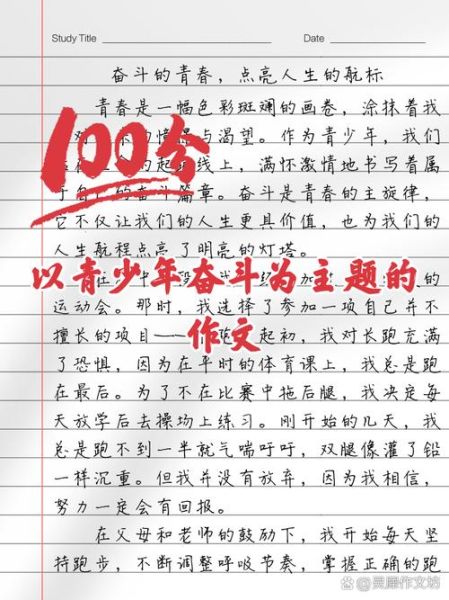 Study Title
Date
奋斗的青春，点亮人生的航标
青春是一幅色彩斑斓的画卷，涂抹着我
与渴望。作为青少年，我们
100分
线上，满怀激情地书写着属
奋斗篇章。奋斗是青春的主旋律，
它不仅让我们的人生更具价值，也为我们的
人生航程点亮了明亮的灯塔。
以青少年奋斗为主题的
作文
运动会。那时，我选择了参加一项自己并不
擅长的项目
起初，我对长跑充满
了恐惧，因为在平时的体育课上，我总是跑
在最后。为了不在比赛中拖后腿，我决定每
天放学后去操场上练习。刚开始的几天，我
总是跑不到一半就气喘吁吁，双腿像灌了铅
一样沉重。但我并没有放弃，因为我相信，
努力一定会有回报。
在父母和老师的鼓励下，我开始每天坚
持跑步，不断调整呼吸节奏，掌握正确的跑
@灵犀作文坊